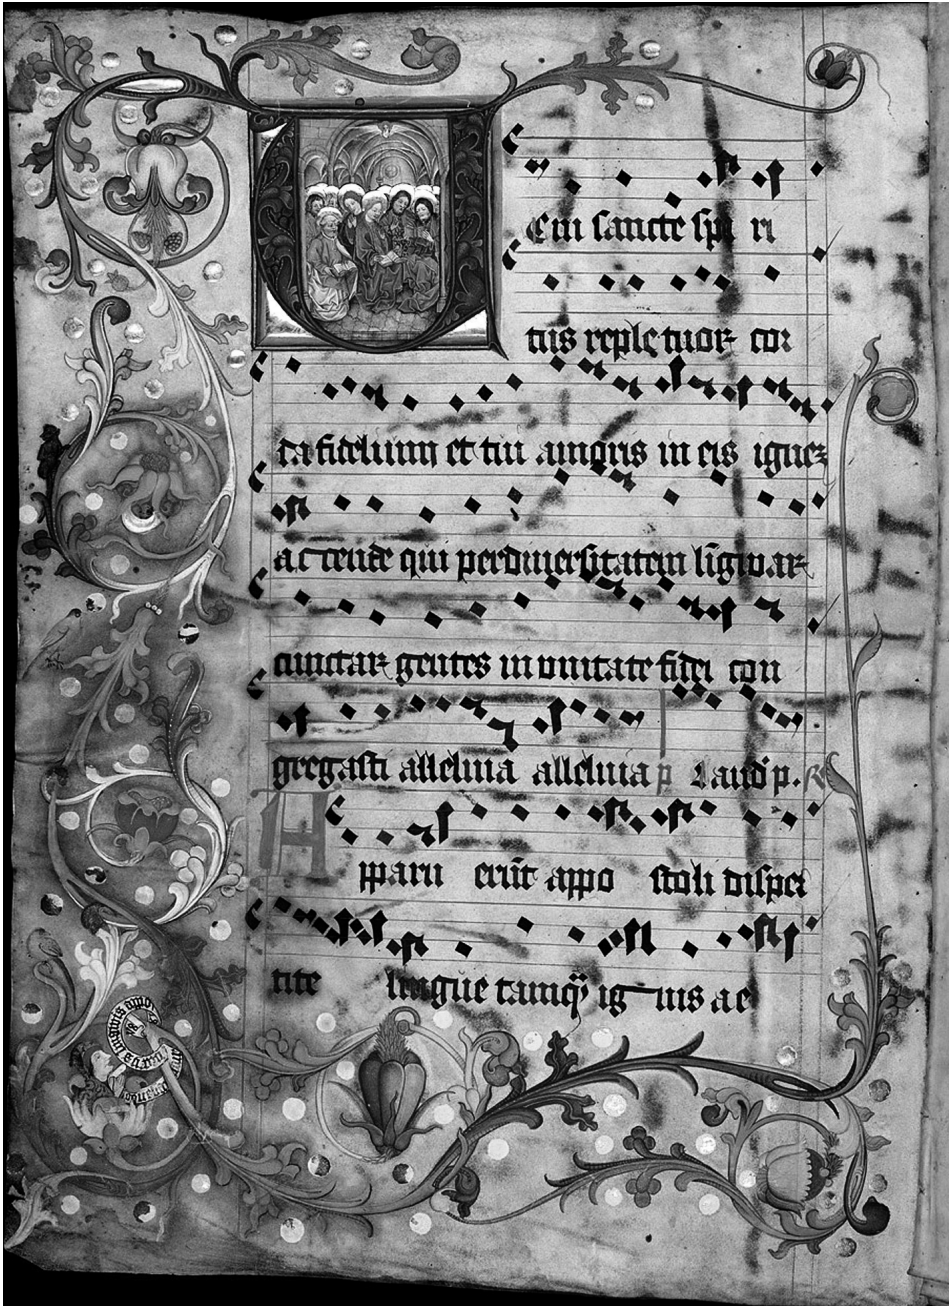 Ueni sancte spi ri
tus reple tuoꝝ cor
da fidelium et tui amoris in eis ignez
accende qui per diuersitatem līguaꝝ
cunctaꝝ gentes in vnitate fidei con
gregasti alleluia alleluia p̄ Laud' p. R
Apparu erūt appo stoli disper
tite lingue tamq̄ ig nis a e